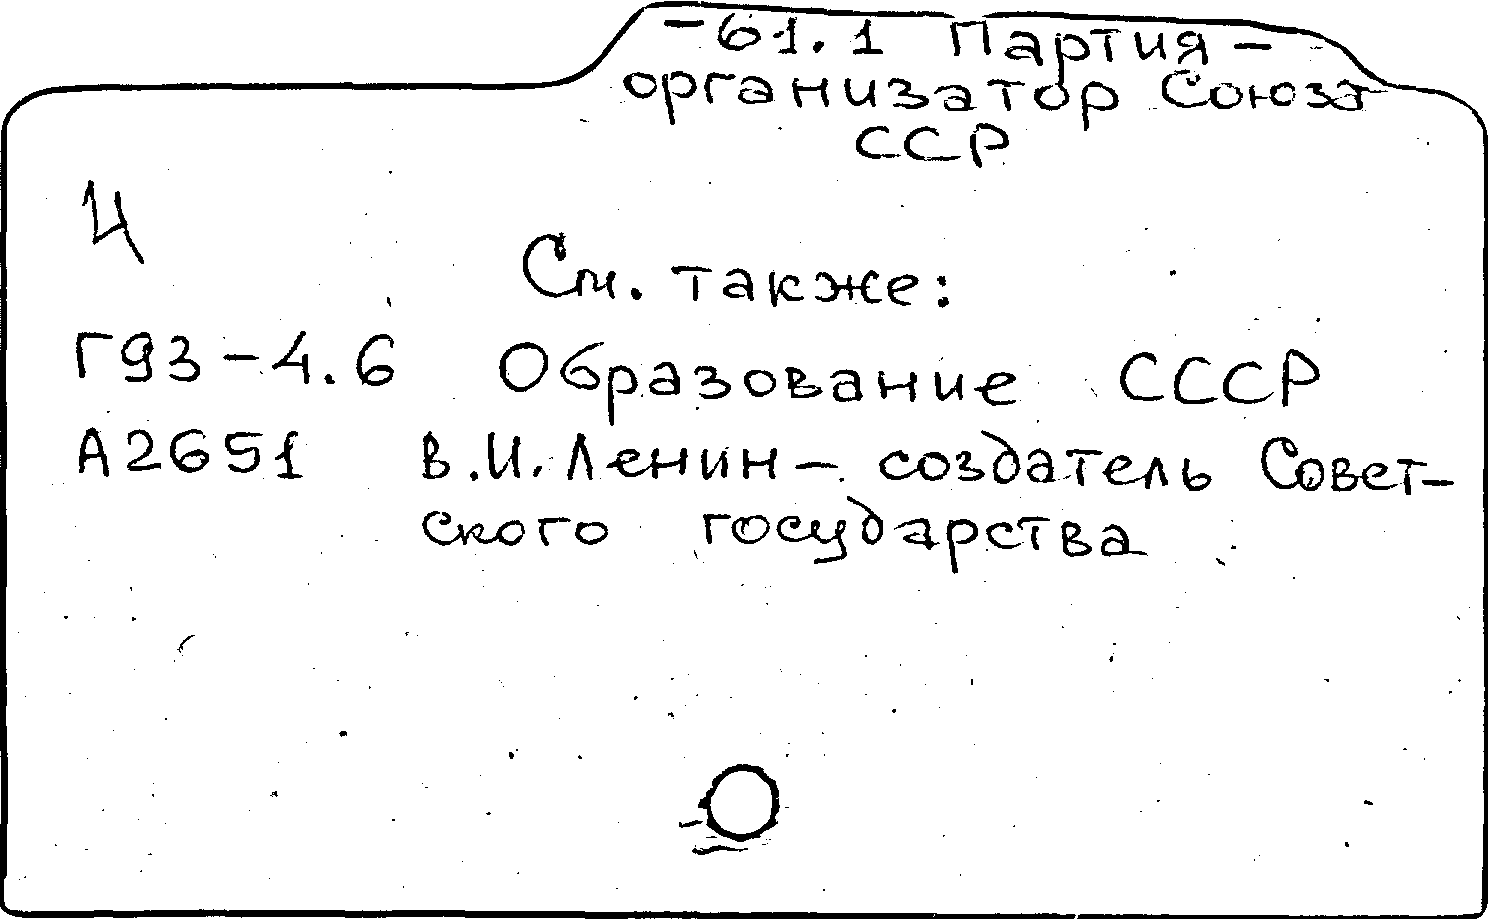 -61.1 Партия -
организатор Союза
ССР
И
См. также:
Г93-4.6 Образование СССР
А2651 В.И. Ленин - создатель Совет-
ского государства